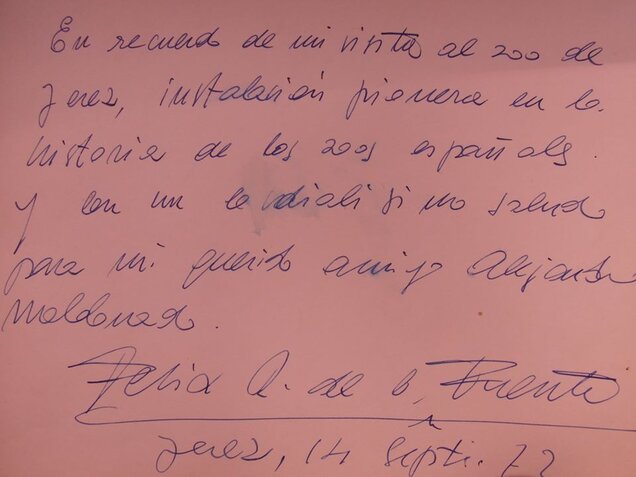 En recuerdo de mi visita al zoo de
Jerez, instalación pionera en la
historia de los zoos españoles.
Y con un cordialísimo saludo
para mi querido amigo Alejandro
Maldonado.
Felix R. de la Fuente
Jerez, 14 Septi. 72